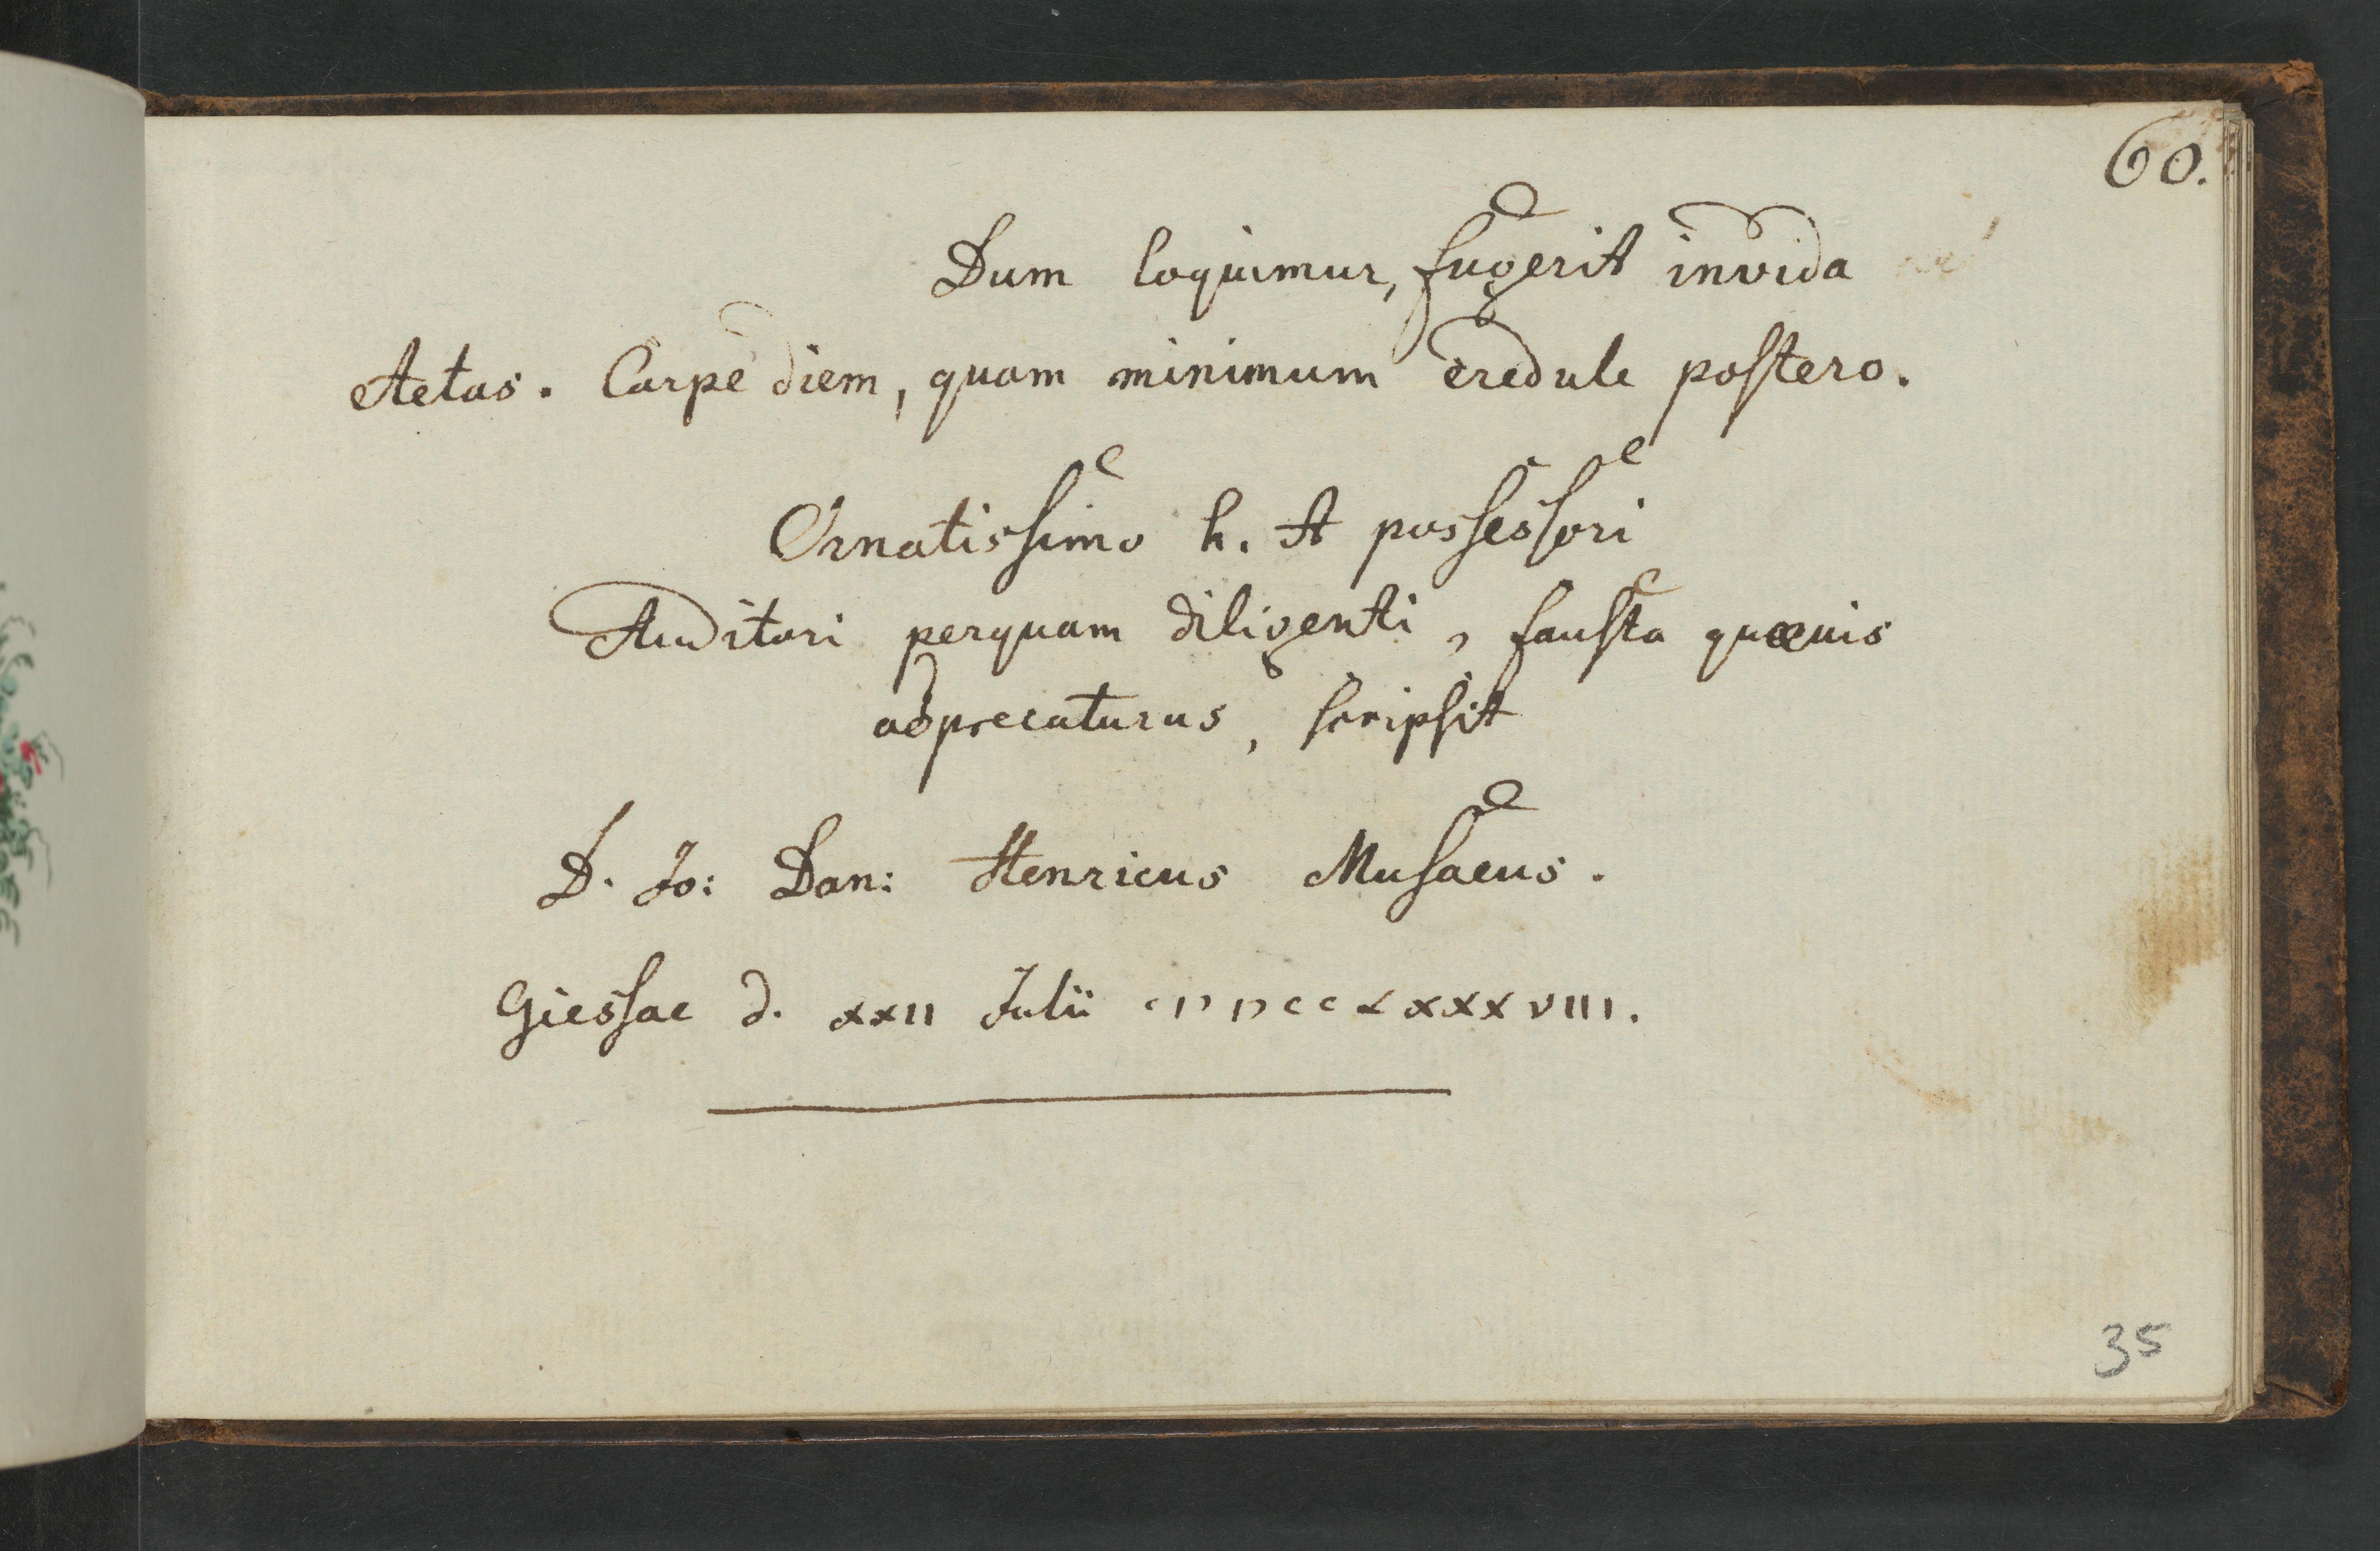 60.
Dum loquimur, fugerit invida
Aetas. Carpe diem, quam minimum credule postero.
Ornatissimo h. A possessori
Auditori perquam diligenti, fausta quaeuis
adprecaturus, scripsit
D. Jo: Dan: Henricus Musaeus.
Giessae d. XXII Julii CIↃ IↃCCLXXXVIII.
35